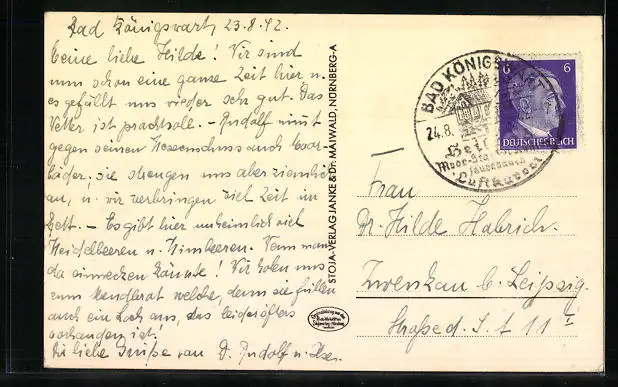 Bad Königswart, 23.8.42.
Meine liebe Hilde! Wir sind
nun schon eine ganze Zeit hier u.
es gefällt uns wieder sehr gut. Das
Wetter ist prachtvoll. – Rudolf nimmt
gegen seinen auch Moor-
sie strengen uns aber ziemlich
an, u. wir verbringen viel Zeit im
Bett. – Es gibt hier unheimlich viel
Heidelbeeren u. Himbeeren. Wenn man
da einwecken könnte! Wir holen uns
zum Abendbrot welche, denn sie füllen
auch ein Loch aus, das leider öfters
vorhanden ist!
Liebe Grüße von D. Rudolf u. Ilse.
STOJA-VERLAG JANKE & Dr. MAIWALD, NÜRNBERG-A
BAD KÖNIGSWART
24.8.
Luftkurort
6 6
DEUTSCHES REICH
Frau
Dr. Hilde Habrich.
Zwenkau b. Leipzig.
Straße d. S.A. 11 I